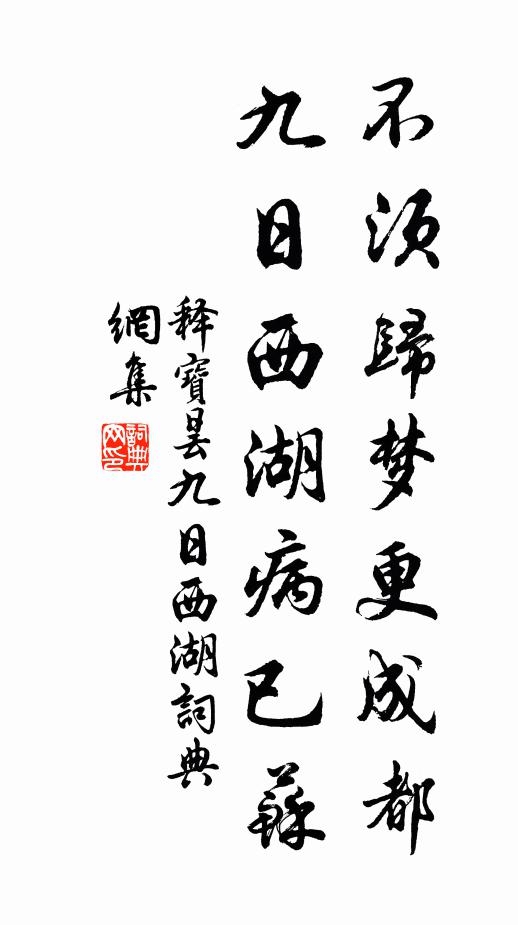 不须歸梦更成都
九日西湖病已蘇
释寶曇九日西湖詞典
網集
詞典網印